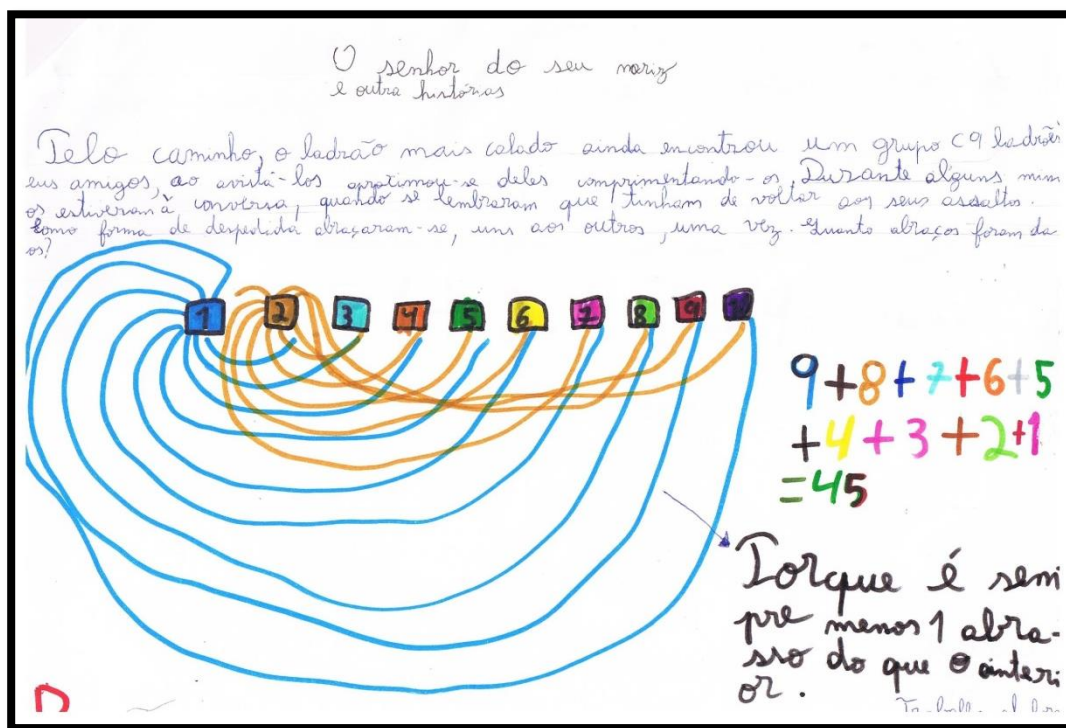 O senhor do seu nariz
e outra histórias
Pelo caminho, o ladrão mais calado ainda encontrou um grupo c9 ladrões
eus amigos, ao avistá-los aproximou-se deles comprimentando-os. Durante alguns minu
os estiveram à conversa, quando se lembraram que tinham de voltar aos seus assaltos.
Como forma de despedida abraçaram-se, uns aos outros, uma vez. Quanto abraços foram da
os?
1 2 3 4 5 6 7 8 9 10
9+8+7+6+5
+4+3+2+1
=45
Porque é sem
pre menos 1 abra-
sso do que o anteri
or.